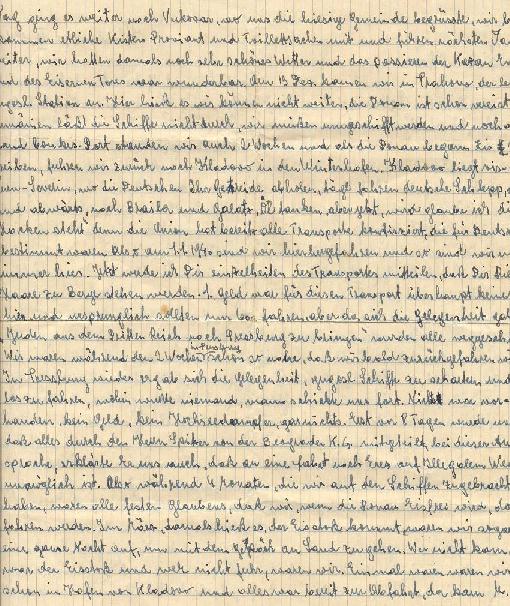 ging es weiter nach Vukovar, wo uns die hiesige Gemeinde begrüsste, wir be-
kommen etliche Kisten Proviant und Toilettsachen mit und fuhren nächsten Tag
weiter, wir hatten damals noch sehr schönes Wetter und das passieren der Kazan
und des Eisernen Tores war wunderbar. Den 13 Dez. kamen wir in Prahovo, der
Station an. Hier hiess es wir können nicht weiter, die Donau ist schon vereist
Rumänien lässt die Schiffe nicht durch, wir müssen umgeschifft werden und noch
Dort standen wir auch 2 Wochen und als die Donau begann zu
fuhren wir zurück nach Kladovo in den Winterhafen. Kladovo liegt vis
Severin, wo die Deutschen Ihr Getreide abholen, tägl. fahren deutsche Schlepp
und abwärts, nach Braila und Galatz, Öl tanken, aber jetzt, wird glaube ich die
stehn denn die Union hat bereits alle Transporte konfisziert, die für Deutsch
bestimmt waren. Also am 1.1.1940 sind wir hierhergefahren und so sind wir
immer hier. Jetzt werde ich Dir einzelheiten des Transportes mitteilen, dass Dir die
Haare zu Berge stehen werden. 1. Geld war für diesen Transport überhaupt keines
hier und ursprünglich sollten nur 60 fahren, aber da sich die Gelegenheit gab
Juden aus dem Dritten Reich nach Pressburg zu bringen wurden alle
Wir waren während den 2 Wochen in Pressburg schon so nahe, dass wir bald zurückgefahren
In Pressburg wieder ergab sich die Gelegenheit, jugosl. Schiffe zu erhalten und
los zu fahren, wohin wusste niemand, man schickte uns fort. Nichts war vor-
handen, kein Geld, kein Hochseedampfer, garnichts. Erst vor 8 Tagen wurde uns
dass alles durch den Herrn Spitzer von der Belgrader K.G. mitgeteilt, bei dieser An-
sprache, erklärte Er uns auch, dass an eine fahrt nach Erez auf Illegalem Wege
unmöglich ist. Also während 4 Monaten, die wir auf den Schiffen zugebracht
haben, waren alle festen Glaubens, dass wir, wenn die Donau Eisfrei wird,
fahren werden. Im März, damals hiess es, der Eisstoss kommt, waren wir sogar
eine ganze Nacht auf, um mit dem Gepäck an Land zu gehen. Wer nicht kam
war der Eisstoss und wer nicht fuhr, waren wir. Ein mal waren wir
schon in Hafen von Kladovo und alles war bereit zur Abfahrt, da kam